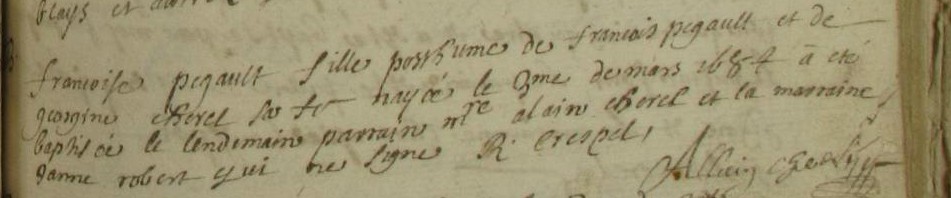 blays et
francoise pegault fille posthume de francois pegault et de
georgine cherel sa fe nayée le 3me de mars 1684 a eté
baptisée le lendemain parrain mre alain cherel et la marraine
janne robert qui ne signe R Crespel,